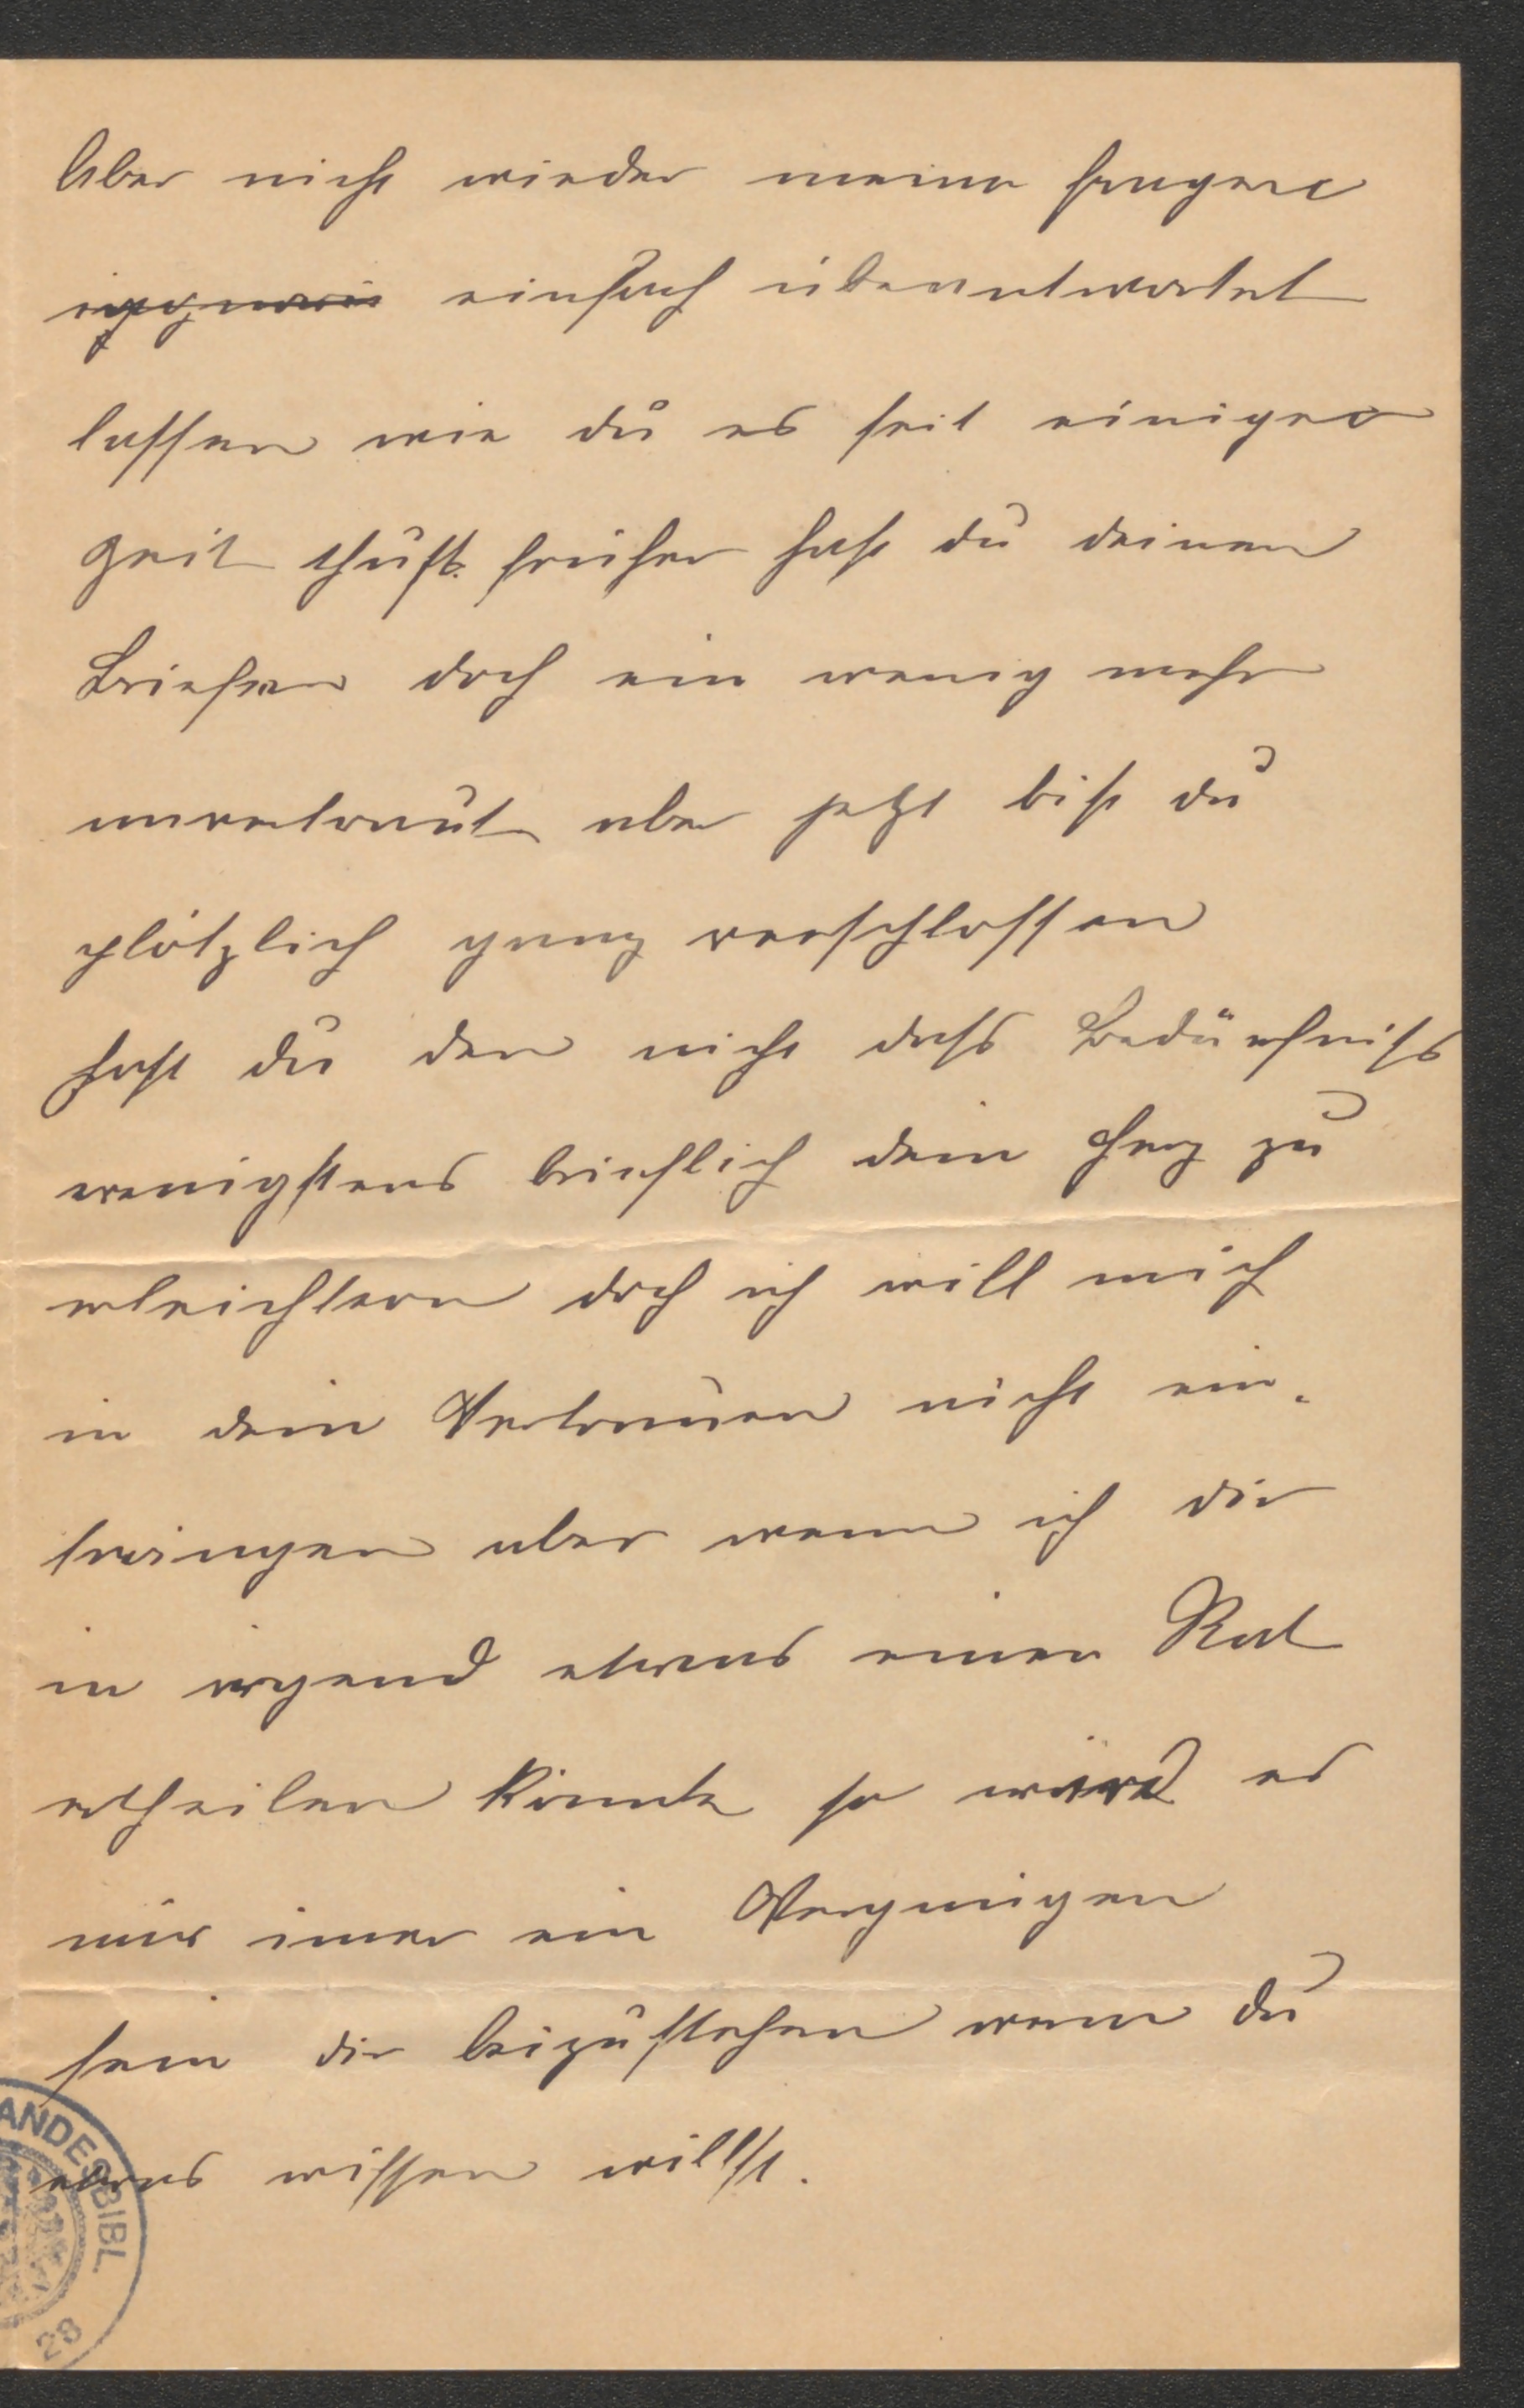 Aber nicht wieder meine fragen
einfach überantwortet
lassen wie du es seit einiger
Zeit thust. früher hast du deinen
Briefen doch ein wenig mehr
anvertraut aber jetzt bist du
plötzlich ganz verschlossen
hast du den nicht dass Bedürfniss
wenigstens brieflich dein Herz zu
erleichtern doch ich will mich
in dein Vertrauen nicht ein-
tringen aber wenn ich dir
in irgend etwas einen Rat
ertheilen könnte so würd es
mir imer ein Vergnügen
sein dir beizustehen wenn du
etwas wissen willst.
ANDESBIBL.
28